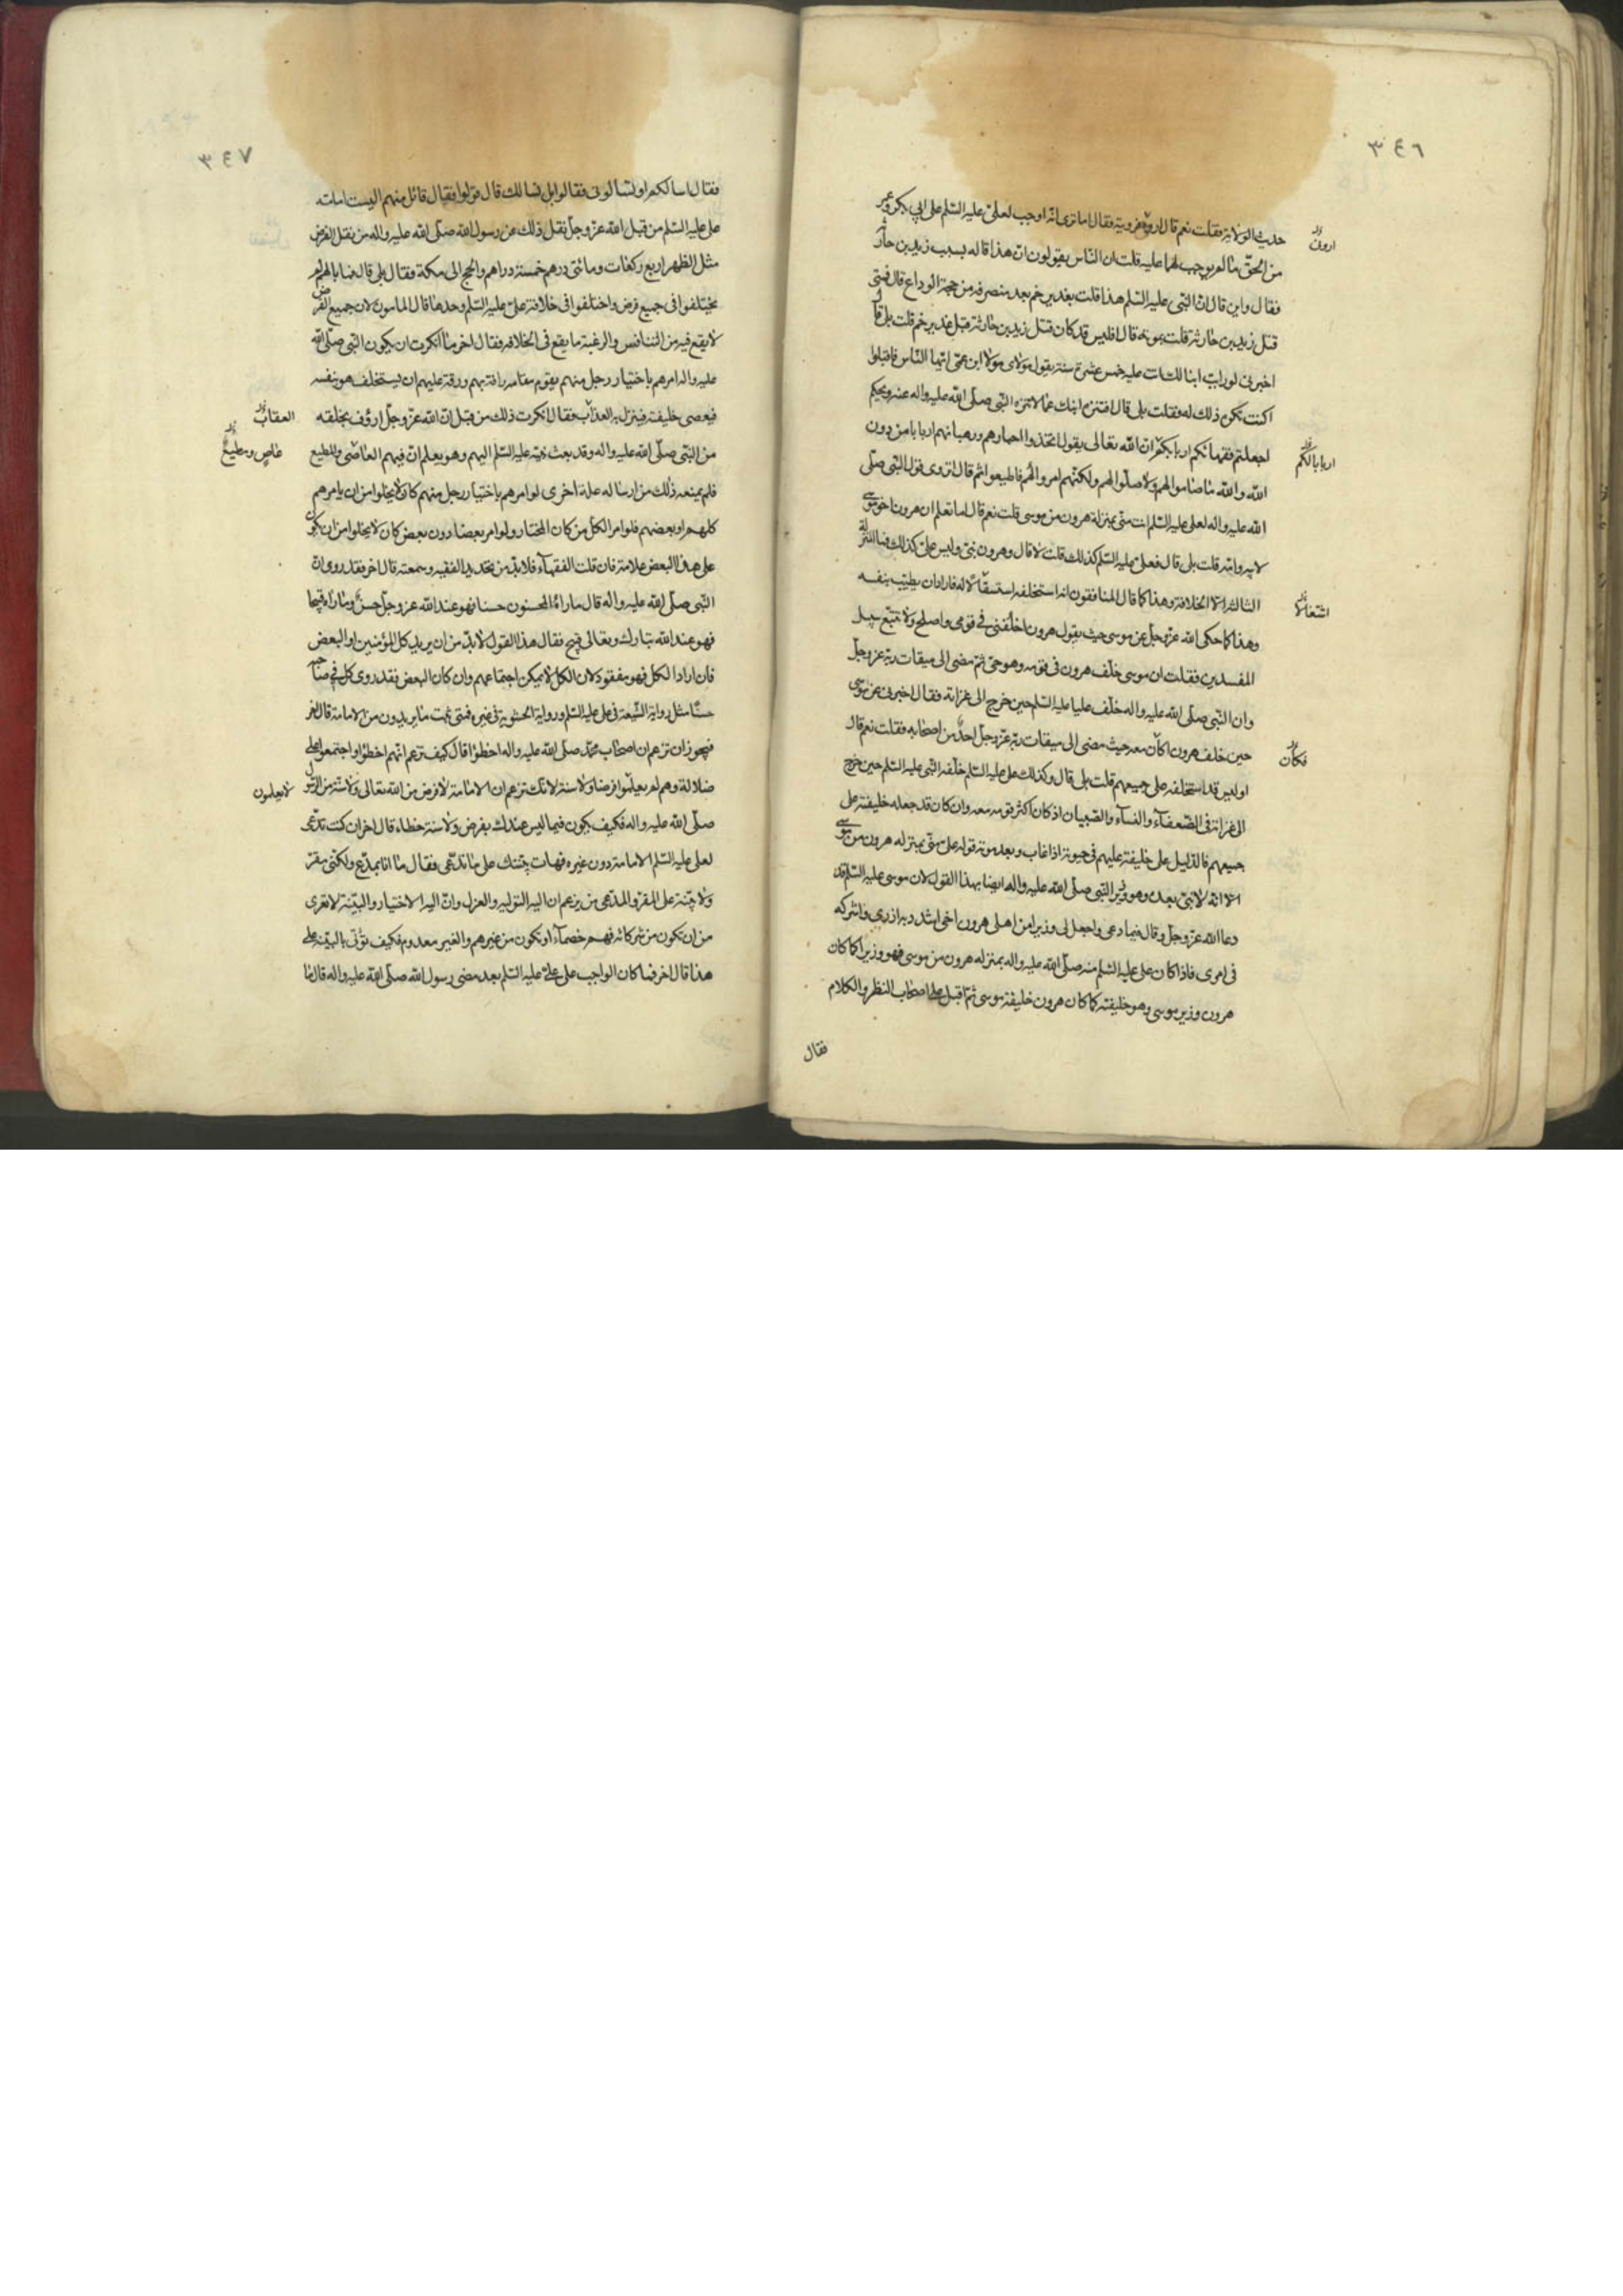 ٣٤٦
حديث الولاية فقلت نعم قال اروه فرويته فقال اما ترى انه اوجب لعلي عليه السلم على ابي بكر وعمر
اروه
من الحق ما لم يوجب لهما عليه قلت ان الناس يقولون ان هذا قاله بسبب زيد بن حارثة
فقال واين قال النبي عليه السلم هذا قلت بغدير خم بعد منصرفه من حجة الوداع قال فمتى
قتل زيد بن حارثة قلت بموته قال افليس قد كان قتل زيد بن حارثة قبل غدير خم قلت بلى قال
اخبرني لو رايت ابنا لك اتت عليه خمس عشرة سنة يقول مولاى مولا ابن عمى ايها الناس فاقبلوا
اكنت تكره ذلك له فقلت بلى قال افتنزه ابنك عما لا تنزه النبي صلى الله عليه واله عنه ويحكم
اجعلتم فقهائكم اربابكم ان الله تعالى يقول اتخذوا احبارهم ورهبانهم اربابا من دون
اربابا لكم
الله والله ما صاموا لهم ولا صلوا لهم ولكنهم امروا لهم فاطيعوا ثم قال اتروى قول النبي صلى
الله عليه واله لعلي عليه السلم انت منى بمنزلة هرون من موسى قلت نعم قال اما تعلم ان هرون اخو موسى
لابيه وامه قلت بلى قال فعلي عليه السلم كذلك قلت لا قال وهرون نبي وليس علي كذلك فما المنزلة
الثالثة الا الخلافة وهذا كما قال المنافقون انه استخلفه استثقالا له فاراد ان يطيب بنفسه
وهذا كما حكى الله عز وجل عن موسى حيث يقول هرون اخلفني في قومى واصلح ولا تتبع سبيل
المفسدين فقلت ان موسى خلف هرون في قومه وهو حي ثم مضى الى ميقات ربه عز وجل
وان النبي صلى الله عليه واله خلف عليا عليه السلم حين خرج الى غزاته فقال اخبرني عن موسى
حين خلف هرون اكان معه حيث مضى الى ميقات ربه عز وجل احد من اصحابه فقلت نعم قال
فكان
اوليس قد استخلفه على جميعهم قلت بلى قال وكذلك علي عليه السلم خلفه النبي عليه السلم حين خرج
الى غزاته في الضعفاء والنساء والصبيان اذ كان اكثر قومه معه وان كان قد جعله خليفة على
جميعهم فالدليل على خليفة عليهم في حيوته اذا غاب وبعد موته قوله علي منى بمنزله هرون من موسى
الا انه لا نبي بعدى وهو وزير النبي صلى الله عليه واله ايضا بهذا القول لان موسى عليه السلم قد
دعا الله عز وجل وقال فيما دعى واجعل لى وزيرا من اهلى هرون اخى اشدد به ازرى واشركه
فى امرى فاذا كان علي عليه السلم منه صلى الله عليه واله بمنزله هرون من موسى فهو وزيره كما كان
هرون وزير موسى وهو خليفته كما كان هرون خليفة موسى ثم اقبل على اصحاب النظر والكلام
فقال
٣٤٧
فقال اسالكم او تسالونى فقالوا بل نسالك قال قولوا فقال قائل منهم اليست امامة
علي عليه السلم من قبل الله عز وجل نقل ذلك عن رسول الله صلى الله عليه واله من نقل الفرض
مثل الظهر اربع ركعات ومائتى درهم خمسة دراهم والحج الى مكة فقال بلى قال فما بالهم لم
يختلفوا فى جميع فرض واختلفوا فى خلافة علي عليه السلم وحدها قال المامون لان جميع الفرض
لا يقع فيه من التنافس والرغبة ما يقع فى الخلافه فقال اخر ما انكرت ان يكون النبي صلى الله
عليه واله امرهم باختيار رجل منهم يقوم مقامه رافة بهم ورقة عليهم ان يستخلف هو بنفسه
فيعصى خليفته فينزل به العذاب فقال انكرت ذلك من قبل ان الله عز وجل ارؤف بخلقه
العقاب
من النبي صلى الله عليه واله وقد بعث نبيه عليه السلم اليهم وهو يعلم ان فيهم العاصى والمطيع
عاص ومطيع
فلم يمنعه ذلك من ارساله علة اخرى لو امرهم باختيار رجل منهم كان لا يخلوا من ان يامرهم
كلهم او بعضهم فلو امر الكل من كان المختار ولو امر بعضا دون بعض كان لا يخلوا من ان يكون
على هذا البعض علامة فان قلت الفقهاء فلا بد من تحديد الفقيه وسمعته قال اخر فقد روى ان
النبي صلى الله عليه واله قال ما راه المحسنون حسنا فهو عند الله عز وجل حسن وما راه قبيحا
فهو عند الله تبارك وتعالى قبيح فقال هذا القول لا بد من ان يريد كل المؤمنين او البعض
فان اراد الكل فهو مفقود لان الكل لا يمكن اجتماعهم وان كان البعض فقد روى كل فى صاحبه
حسنا مثل رواية الشيعة فى علي عليه السلم ورواية الحشوية فى غيره فمتى يثبت ما يريدون من الامامة قال اخر
فيجوز ان تزعم ان اصحاب محمد صلى الله عليه واله اخطؤا قال كيف تزعم انهم اخطؤا واجتمعوا على
ضلالة وهم لم يعلموا فرضا ولا سنة لانك تزعم ان الامامة لا فرض من الله تعالى ولا سنة من الرسول
لا يعلمون
صلى الله عليه واله فكيف يكون فيما ليس عندك بفرض ولا سنة خطاء قال اخر ان كنت تدعى
لعلي عليه السلم الامامة دون غيره فهات بينتك على ما تدعى فقال ما انا بمدع ولكنى مقر
ولا بينة على المقر والمدعى من يزعم ان اليه التوليه والعزل وان اليه الاختيار والبينة لا تعرى
من ان تكون من شركائه فهم خصماء او تكون من غيرهم والغير معدوم فكيف يؤتى بالبينة على
هذا قال اخر فما كان الواجب على علي عليه السلم بعد مضى رسول الله صلى الله عليه واله قال ما